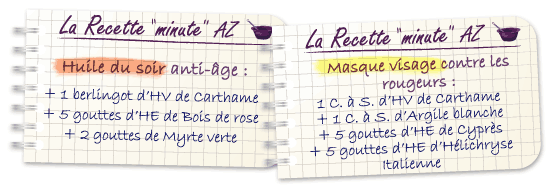 La Recette "minute" AZ
Huile du soir anti-âge :
+ 1 berlingot d'HV de Carthame
+ 5 gouttes d'HE de Bois de rose
+ 2 gouttes de Myrte verte
La Recette "minute" AZ
Masque visage contre les
rougeurs :
1 C. à S. d'HV de Carthame
+ 1 C. à S. d'Argile blanche
+ 5 gouttes d'HE de Cyprès
+ 5 gouttes d'HE d'Hélichryse
Italienne